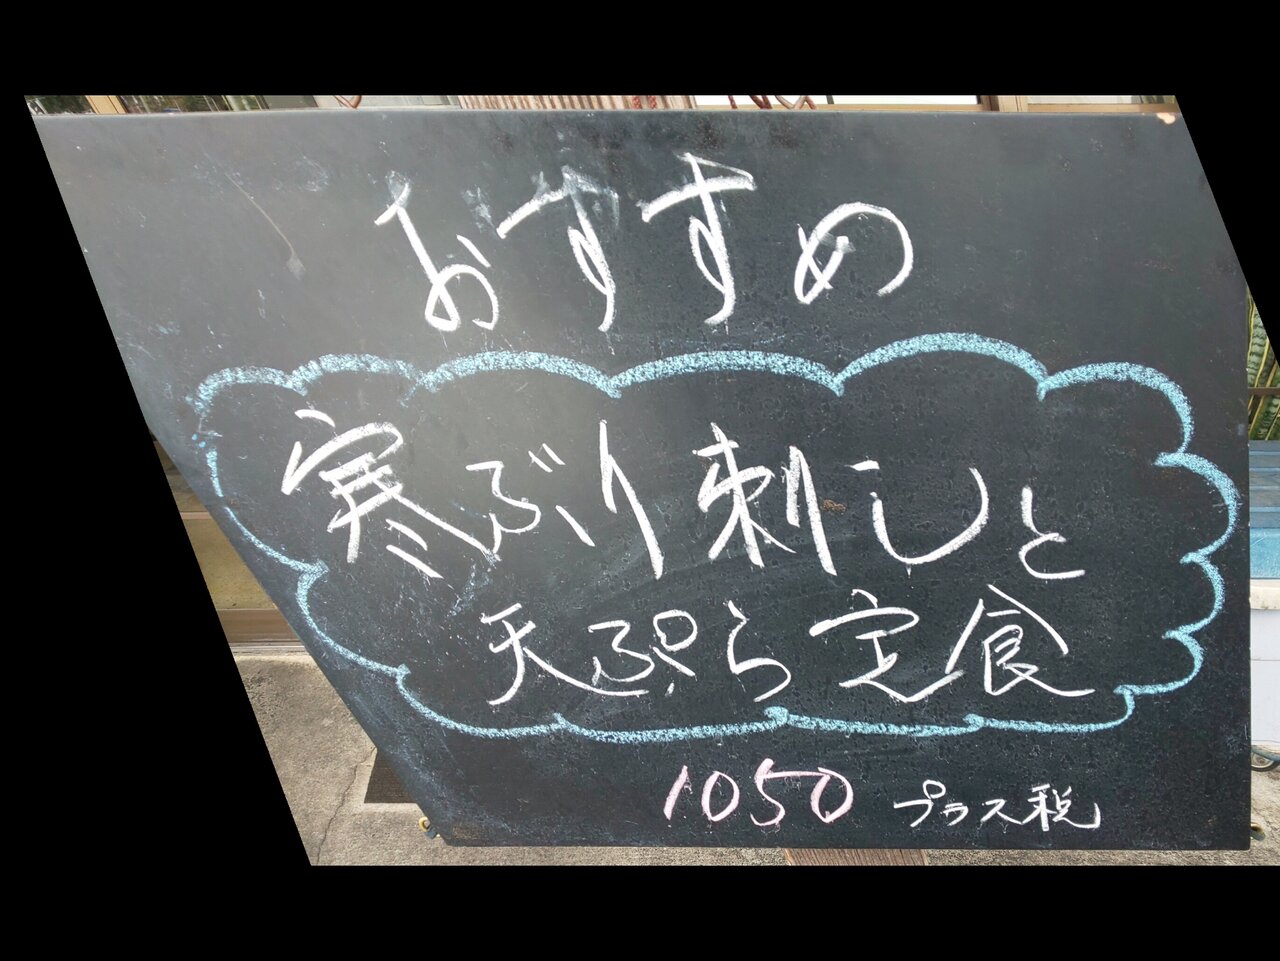 おすすめ
寒ぶり刺しと
天ぷら定食
1050 プラス税